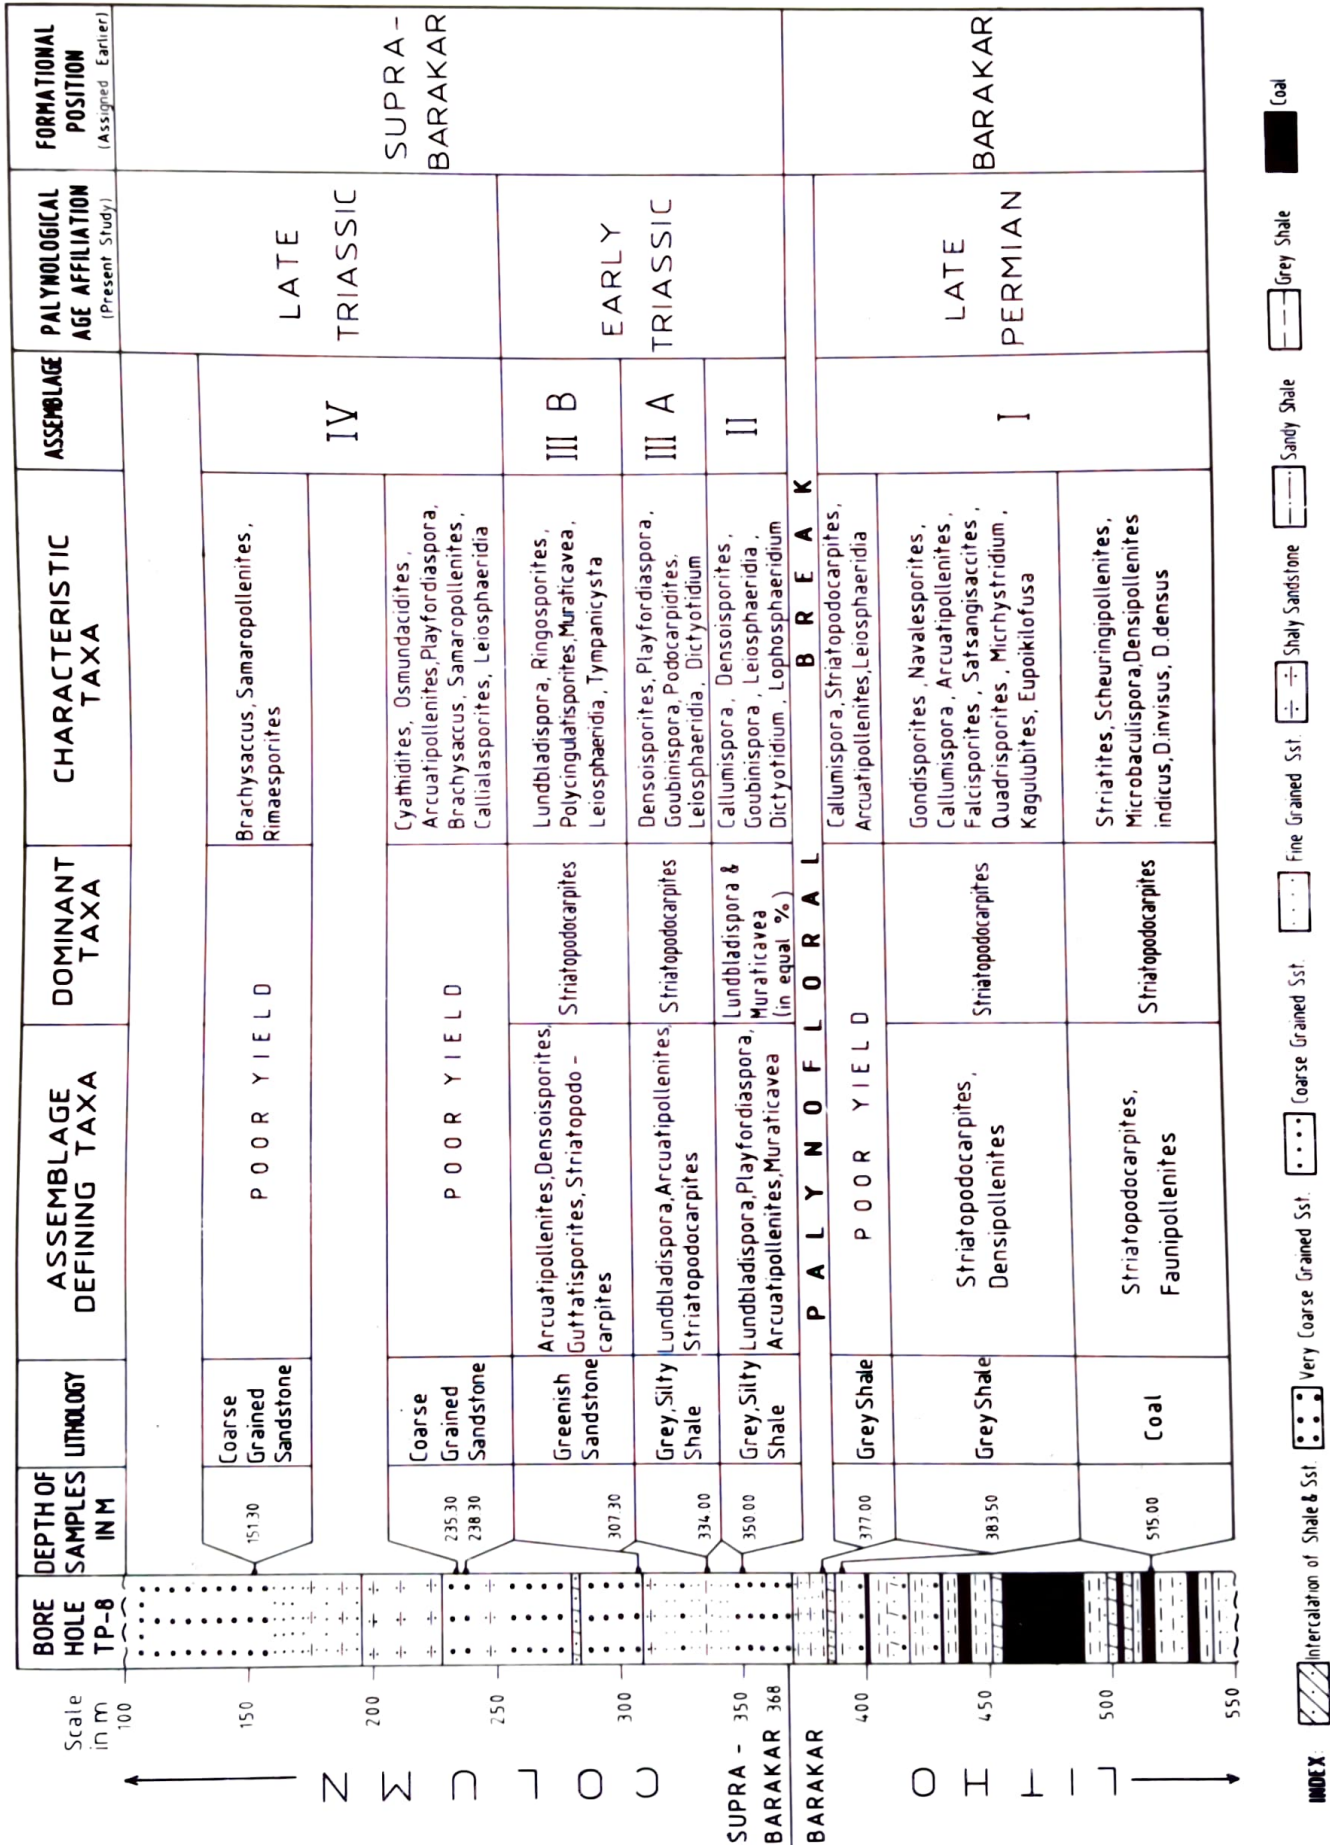 BORE
HOLE
TP-8
DEPTH OF
SAMPLES
IN M
LITHOLOGY
ASSEMBLAGE
DEFINING TAXA
DOMINANT
TAXA
CHARACTERISTIC
TAXA
ASSEMBLAGE
PALYNOLOGICAL
AGE AFFILIATION
(Present Study)
FORMATIONAL
POSITION
(Assigned Earlier)
Scale
in m
100
150
200
250
300
350
368
400
450
500
550
LITHO COLUMN
SUPRA -
BARAKAR
BARAKAR
151.30
Coarse
Grained
Sandstone
POOR YIELD
Brachysaccus, Samaropollenites,
Rimaesporites
IV
LATE
TRIASSIC
SUPRA-
BARAKAR
235.30
238.30
Coarse
Grained
Sandstone
POOR YIELD
Cyathidites, Osmundacidites,
Arcuatipollenites, Playfordiaspora,
Brachysaccus, Samaropollenites,
Callialasporites, Leiosphaeridia
307.30
Greenish
Sandstone
Arcuatipollenites, Densoisporites,
Guttatisporites, Striatopodo -
carpites
Striatopodocarpites
Lundbladispora, Ringosporites,
Polycingulatisporites, Muraticavea,
Leiosphaeridia, Tympanicysta
III B
EARLY
TRIASSIC
334.00
Grey, Silty
Shale
Lundbladispora, Arcuatipollenites,
Striatopodocarpites
Striatopodocarpites
Densoisporites, Playfordiaspora,
Goubinispora, Podocarpidites,
Leiosphaeridia, Dictyotidium
III A
350.00
Grey, Silty
Shale
Lundbladispora, Playfordiaspora,
Arcuatipollenites, Muraticavea
Lundbladispora &
Muraticavea
(in equal %)
Callumispora, Densoisporites,
Goubinispora, Leiosphaeridia,
Dictyotidium, Lophosphaeridium
II
PALYNOFLORAL BREAK
377.00
Grey Shale
POOR YIELD
Callumispora, Striatopodocarpites,
Arcuatipollenites, Leiosphaeridia
I
LATE
PERMIAN
BARAKAR
383.50
Grey Shale
Striatopodocarpites,
Densipollenites
Striatopodocarpites
Gondisporites, Navalesporites,
Callumispora, Arcuatipollenites,
Falcisporites, Satsangisaccites,
Quadrisporites, Micrhystridium,
Kagulubites, Eupoikilofusa
515.00
Coal
Striatopodocarpites,
Faunipollenites
Striatopodocarpites
Striatites, Scheuringipollenites,
Microbaculispora, Densipollenites
indicus, D.invisus, D.densus
INDEX:
Intercalation of Shale & Sst.
Very Coarse Grained Sst.
Coarse Grained Sst.
Fine Grained Sst.
Shaly Sandstone
Sandy Shale
Grey Shale
Coal